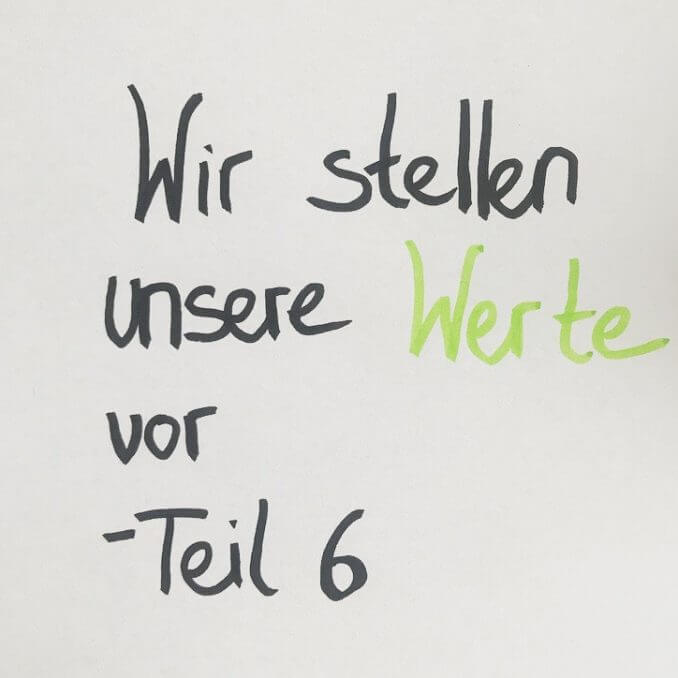 Wir stellen
unsere Werte
vor
-Teil 6